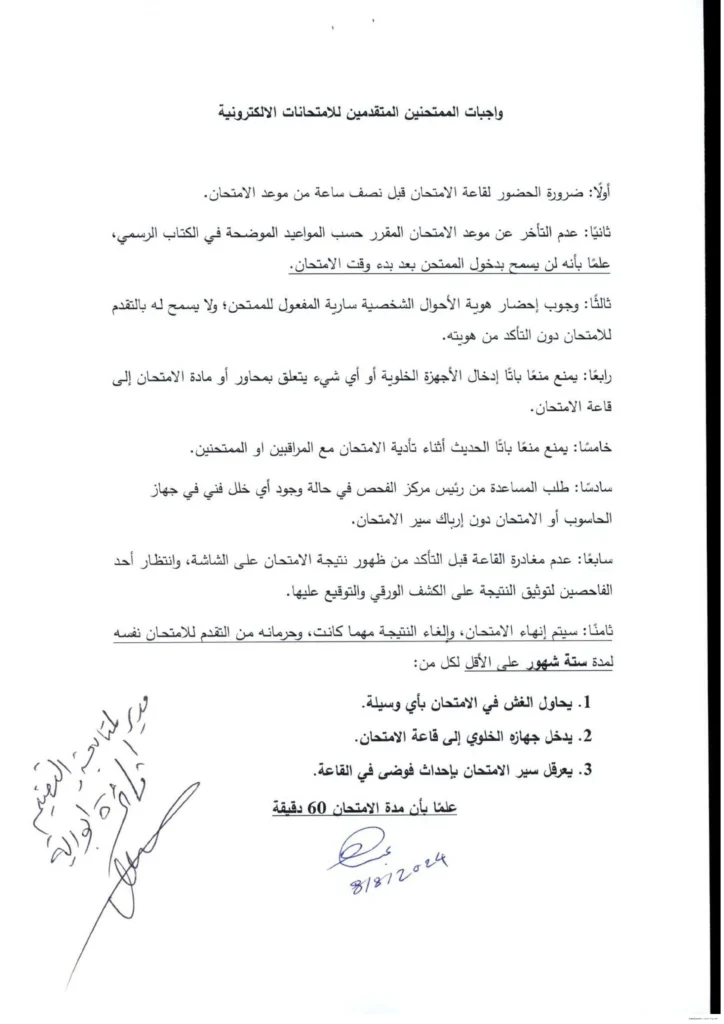 واجبات الممتحنين المتقدمين للامتحانات الالكترونية
أولًا: ضرورة الحضور لقاعة الامتحان قبل نصف ساعة من موعد الامتحان.
ثانيًا: عدم التأخر عن موعد الامتحان المقرر حسب المواعيد الموضحة في الكتاب الرسمي،
علمًا بأنه لن يسمح بدخول الممتحن بعد بدء وقت الامتحان.
ثالثًا: وجوب إحضار هوية الأحوال الشخصية سارية المفعول للممتحن؛ ولا يسمح له بالتقدم
للامتحان دون التأكد من هويته.
رابعًا: يمنع منعًا باتًا إدخال الأجهزة الخلوية أو أي شيء يتعلق بمحاور أو مادة الامتحان إلى
قاعة الامتحان.
خامسًا: يمنع منعًا باتًا الحديث أثناء تأدية الامتحان مع المراقبين او الممتحنين.
سادسًا: طلب المساعدة من رئيس مركز الفحص في حالة وجود أي خلل فني في جهاز
الحاسوب أو الامتحان دون إرباك سير الامتحان.
سابعًا: عدم مغادرة القاعة قبل التأكد من ظهور نتيجة الامتحان على الشاشة، وانتظار أحد
الفاحصين لتوثيق النتيجة على الكشف الورقي والتوقيع عليها.
ثامنًا: سيتم إنهاء الامتحان، وإلغاء النتيجة مهما كانت، وحرمانه من التقدم للامتحان نفسه
لمدة ستة شهور على الأقل لكل من:
1. يحاول الغش في الامتحان بأي وسيلة.
2. يدخل جهازه الخلوي إلى قاعة الامتحان.
3. يعرقل سير الامتحان بإحداث فوضى في القاعة.
علمًا بأن مدة الامتحان 60 دقيقة
8/8/2024